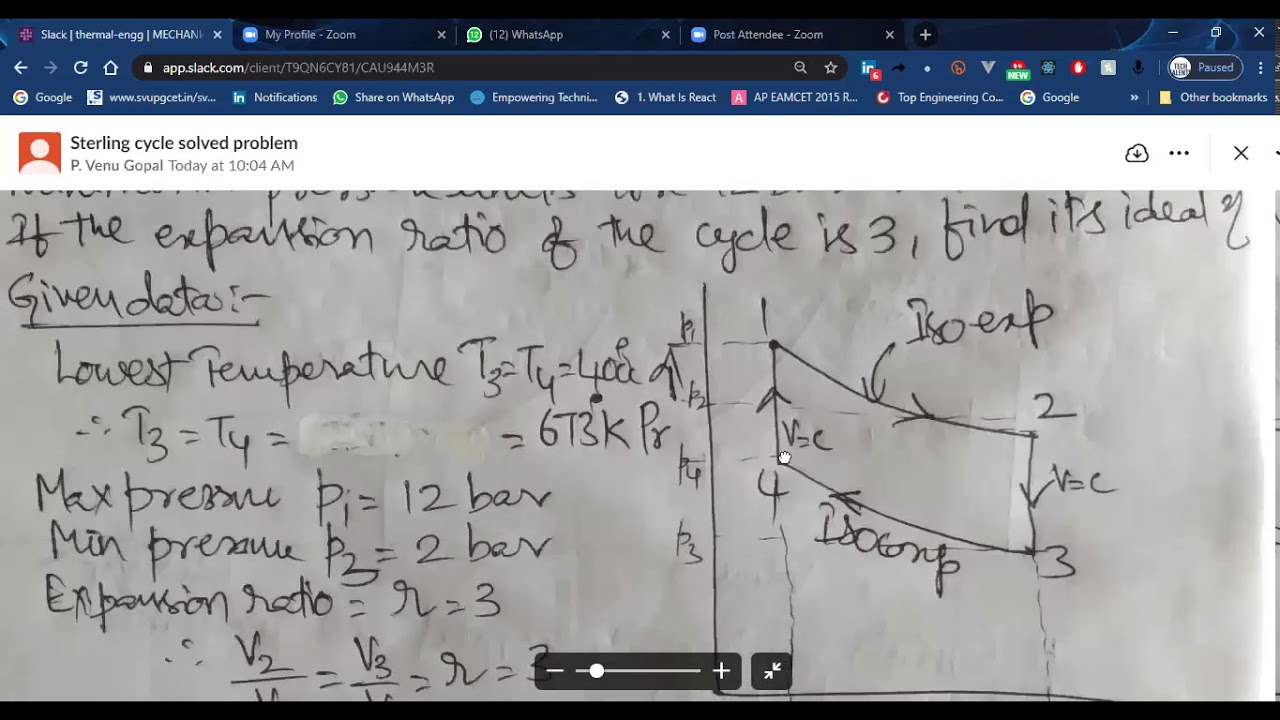 Slack | thermal-engg | MECHAN
My Profile - Zoom
(12) WhatsApp
Post Attendee - Zoom
app.slack.com/client/T9QN6CY81/CAU944M3R
6
NEW
TECH TALENT
Paused
Google
www.svupgcet.in/sv...
Notifications
Share on WhatsApp
Empowering Techni...
1. What Is React
AP EAMCET 2015 R...
Top Engineering Co...
Google
»
Other bookmarks
Sterling cycle solved problem
P. Venu Gopal Today at 10:04 AM
If the expansion ratio of the cycle is 3, find its ideal η
Given data:-
Lowest Temperature T3=T4=400°c
∴ T3 = T4 = = 673K
Max pressure p1 = 12 bar
Min pressure p3 = 2 bar
Expansion ratio = r = 3
∴ V2 = V3 = r = 3
Pr
p1
p2
p4
p3
1
Iso exp
2
V=c
V=c
4
Isocomp
3